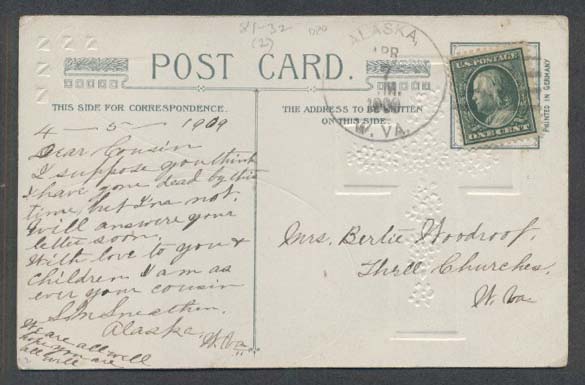 81-32
(2)
DPO
ALASKA,
APR
7
PM.
1909
W. VA.
U.S. POSTAGE
ONE CENT
PRINTED IN GERMANY
POST CARD.
THIS SIDE FOR CORRESPONDENCE.
THE ADDRESS TO BE WRITTEN
ON THIS SIDE.
4-5-1909
Dear Cousin
I suppose you think
I have gone dead by this
time, but I'm not.
Will answere your
letter soon.
With love to you &
children I am as
ever your cousin
Alaska,
W. Va.
We are all well
hope you are
all well
Mrs. Bertie Woodroof,
Three Churches,
W. Va